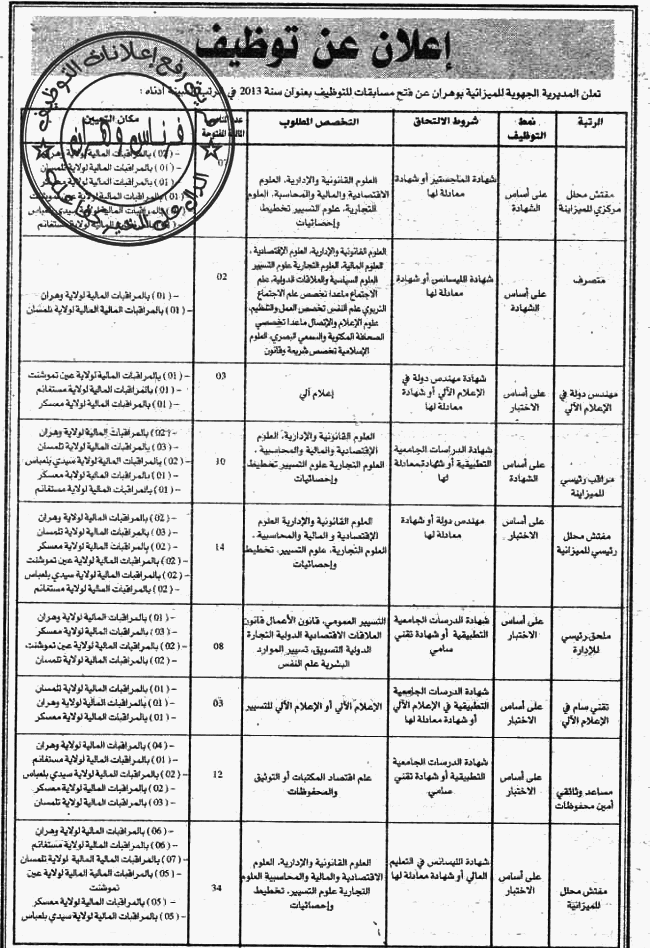 إعلان عن توظيف
تعلن المديرية الجهوية للميزانية بوهران عن فتح مسابقات للتوظيف بعنوان سنة 2013 في أدناه :
الرتبة
نمط
التوظيف
شروط الالتحاق
التخصص المطلوب
المالية المفتوحة
مكان التعيين
مفتش محلل
مركزي للميزانية
على أساس
الشهادة
شهادة الماجستير أو شهادة
معادلة لها
العلوم القانونية والإدارية، العلوم
الاقتصادية والمالية والمحاسبة، العلوم
التجارية، علوم التسيير تخطيط
وإحصائيات
07
– (02) بالمراقبات المالية لولاية وهران
– (01) بالمراقبات المالية لولاية تلمسان
– (01) بالمراقبات المالية لولاية معسكر
(01)
متصرف
على أساس
الشهادة
شهادة الليسانس أو شهادة
معادلة لها
العلوم القانونية والإدارية، العلوم الإقتصادية ،
العلوم المالية، العلوم التجارية علوم التسيير
العلوم السياسية والعلاقات الدولية، علم
الاجتماع ماعدا تخصص علم الاجتماع
التربوي علم النفس تخصص العمل والتنظيم،
علوم الإعلام والإتصال ماعدا تخصصي
الصحافة المكتوبة والسمعي البصري، العلوم
الإسلامية تخصص شريعة وقانون
02
– (01) بالمراقبات المالية لولاية وهران
– (01) بالمراقبات المالية المالية لولاية تلمسان
مهندس دولة في
الإعلام الآلي
على أساس
الاختبار
شهادة مهندس دولة في
الإعلام الآلي أو شهادة
معادلة لها
إعلام آلي
03
– (01) بالمراقبات المالية لولاية عين تموشنت
– (01) بالمراقبات المالية لولاية مستغانم
– (01) بالمراقبات المالية لولاية معسكر
مراقب رئيسي
للميزانية
على أساس
الشهادة
شهادة الدراسات الجامعية
التطبيقية أو شهادة معادلة
لها
العلوم القانونية والإدارية، العلوم
الإقتصادية والمالية والمحاسبية ،
العلوم التجارية علوم التسيير تخطيط
وإحصائيات
10
– (02) بالمراقبات المالية لولاية وهران
– (03) بالمراقبات المالية لولاية تلمسان
– (02) بالمراقبات المالية لولاية سيدي بلعباس
– (01) بالمراقبات المالية لولاية معسكر
– (01) بالمراقبات المالية لولاية مستغانم
مفتش محلل
رئيسي للميزانية
على أساس
الاختبار
مهندس دولة أو شهادة
معادلة لها
العلوم القانونية والإدارية العلوم
الإقتصادية و المالية والمحاسبية ،
العلوم التجارية، علوم التسيير، تخطيط
وإحصائيات
14
– (02) بالمراقبات المالية لولاية وهران
– (03) بالمراقبات المالية لولاية تلمسان
– (02) بالمراقبات المالية لولاية معسكر
– (02) بالمراقبات المالية لولاية عين تموشنت
– (02) بالمراقبات المالية لولاية سيدي بلعباس
– (02) بالمراقبات المالية لولاية مستغانم
ملحق رئيسي
للإدارة
على أساس
الاختبار
شهادة الدرسات الجامعية
التطبيقية أو شهادة تقني
سامي
التسيير العمومي، قانون الأعمال قانون
العلاقات الاقتصادية الدولية التجارة
الدولية التسويق، تسيير الموارد
البشرية علم النفس
08
– (01) بالمراقبات المالية لولاية وهران
– (03) بالمراقبات المالية لولاية معسكر
– (02) بالمراقبات المالية لولاية عين تموشنت
– (02) بالمراقبات المالية لولاية تلمسان
تقني سام في
الإعلام الآلي
على أساس
الاختبار
شهادة الدرسات الجامعية
التطبيقية في الإعلام الآلي
أو شهادة معادلة لها
الإعلام الآلي أو الإعلام الآلي للتسيير
03
– (01) بالمراقبات المالية لولاية تلمسان
– (01) بالمراقبات المالية لولاية وهران
– (01) بالمراقبات المالية لولاية معسكر
مساعد وثائقي
أمين محفوظات
على أساس
الاختبار
شهادة الدرسات الجامعية
التطبيقية أو شهادة تقني
سامي
علم اقتصاد المكتبات أو التوثيق
والمحفوظات
12
– (04) بالمراقبات المالية لولاية وهران
– (01) بالمراقبات المالية لولاية مستغانم
– (02) بالمراقبات المالية لولاية سيدي بلعباس
– (02) بالمراقبات المالية لولاية معسكر
– (03) بالمراقبات المالية لولاية تلمسان
مفتش محلل
للميزانية
على أساس
الاختبار
شهادة الليسانس في التعليم
العالي أو شهادة معادلة لها
العلوم القانونية والإدارية، العلوم
الاقتصادية والمالية والمحاسبية العلوم
التجارية علوم التسيير، تخطيط
وإحصائيات
34
– (06) بالمراقبات المالية لولاية وهران
– (06) بالمراقبات المالية لولاية مستغانم
– (07) بالمراقبات المالية المالية لولاية تلمسان
– (05) بالمراقبات المالية لولاية عين
تموشنت
– (05) بالمراقبات المالية لولاية معسكر
– (05) بالمراقبات المالية لولاية سيدي بلعباس